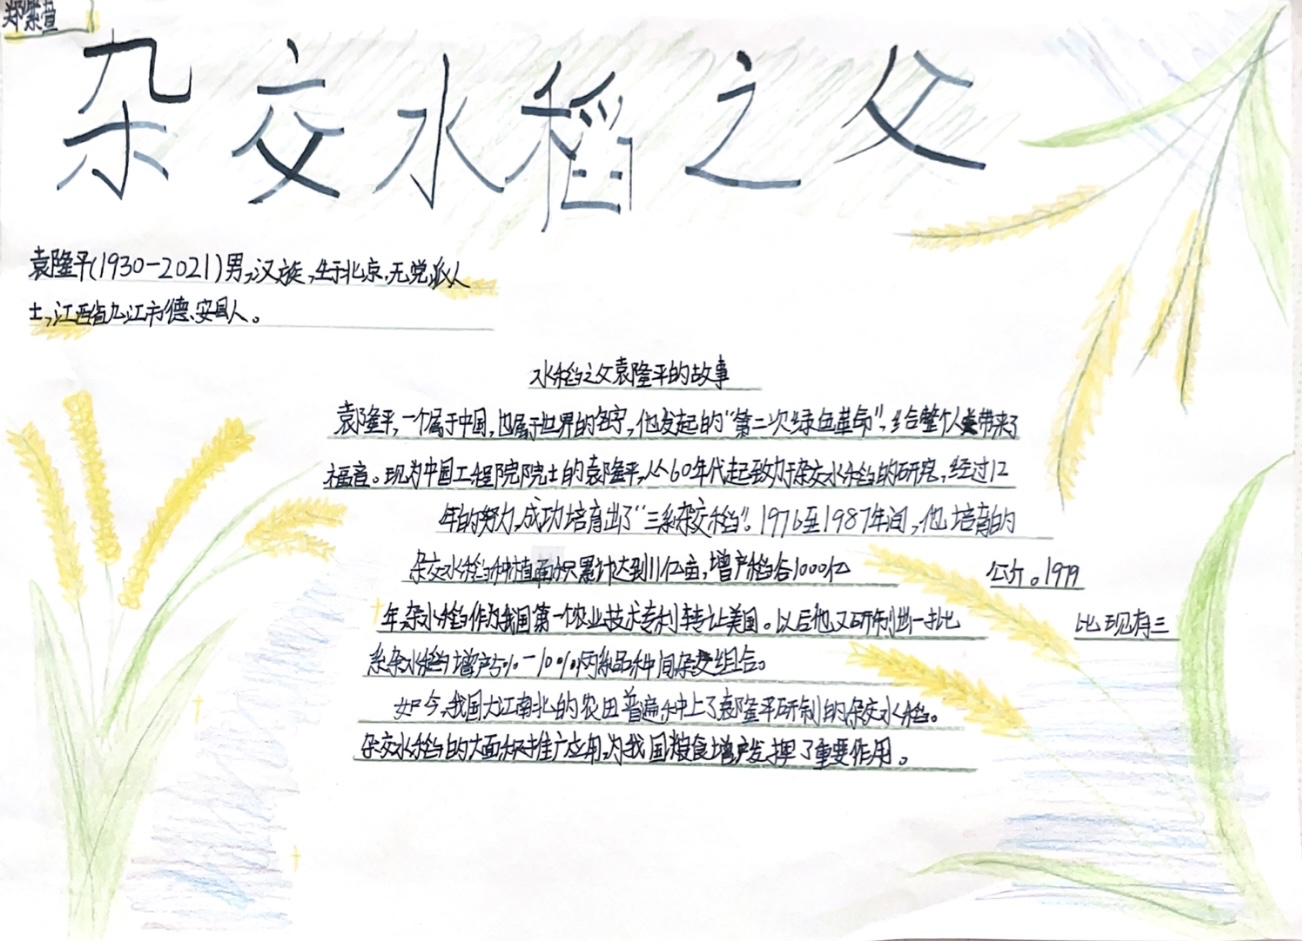 郑紫萱
杂交水稻之父
袁隆平(1930-2021)男,汉族,生于北京,无党派人
士,江西省九江市德安县人。
水稻之父袁隆平的故事
袁隆平,一个属于中国,也属于世界的名字,他发起的“第二次绿色革命”,给整个人类带来了
福音。现为中国工程院院士的袁隆平,从60年代起致力于杂交水稻的研究,经过12
年的努力,成功培育出了“三系杂交稻”。1976至1987年间,他培育的
杂交水稻种植面积累计达到11亿亩,增产稻谷1000亿 公斤。1979
年,杂水稻作为我国第一个农业技术专利转让美国。以后他又研制出一批 比现有三
系杂水稻增产5%-10%的两系品种间杂交组合。
如今,我国大江南北的农田普遍种上了袁隆平研制的杂交水稻。
杂交水稻的大面积推广应用,为我国粮食增产发挥了重要作用。